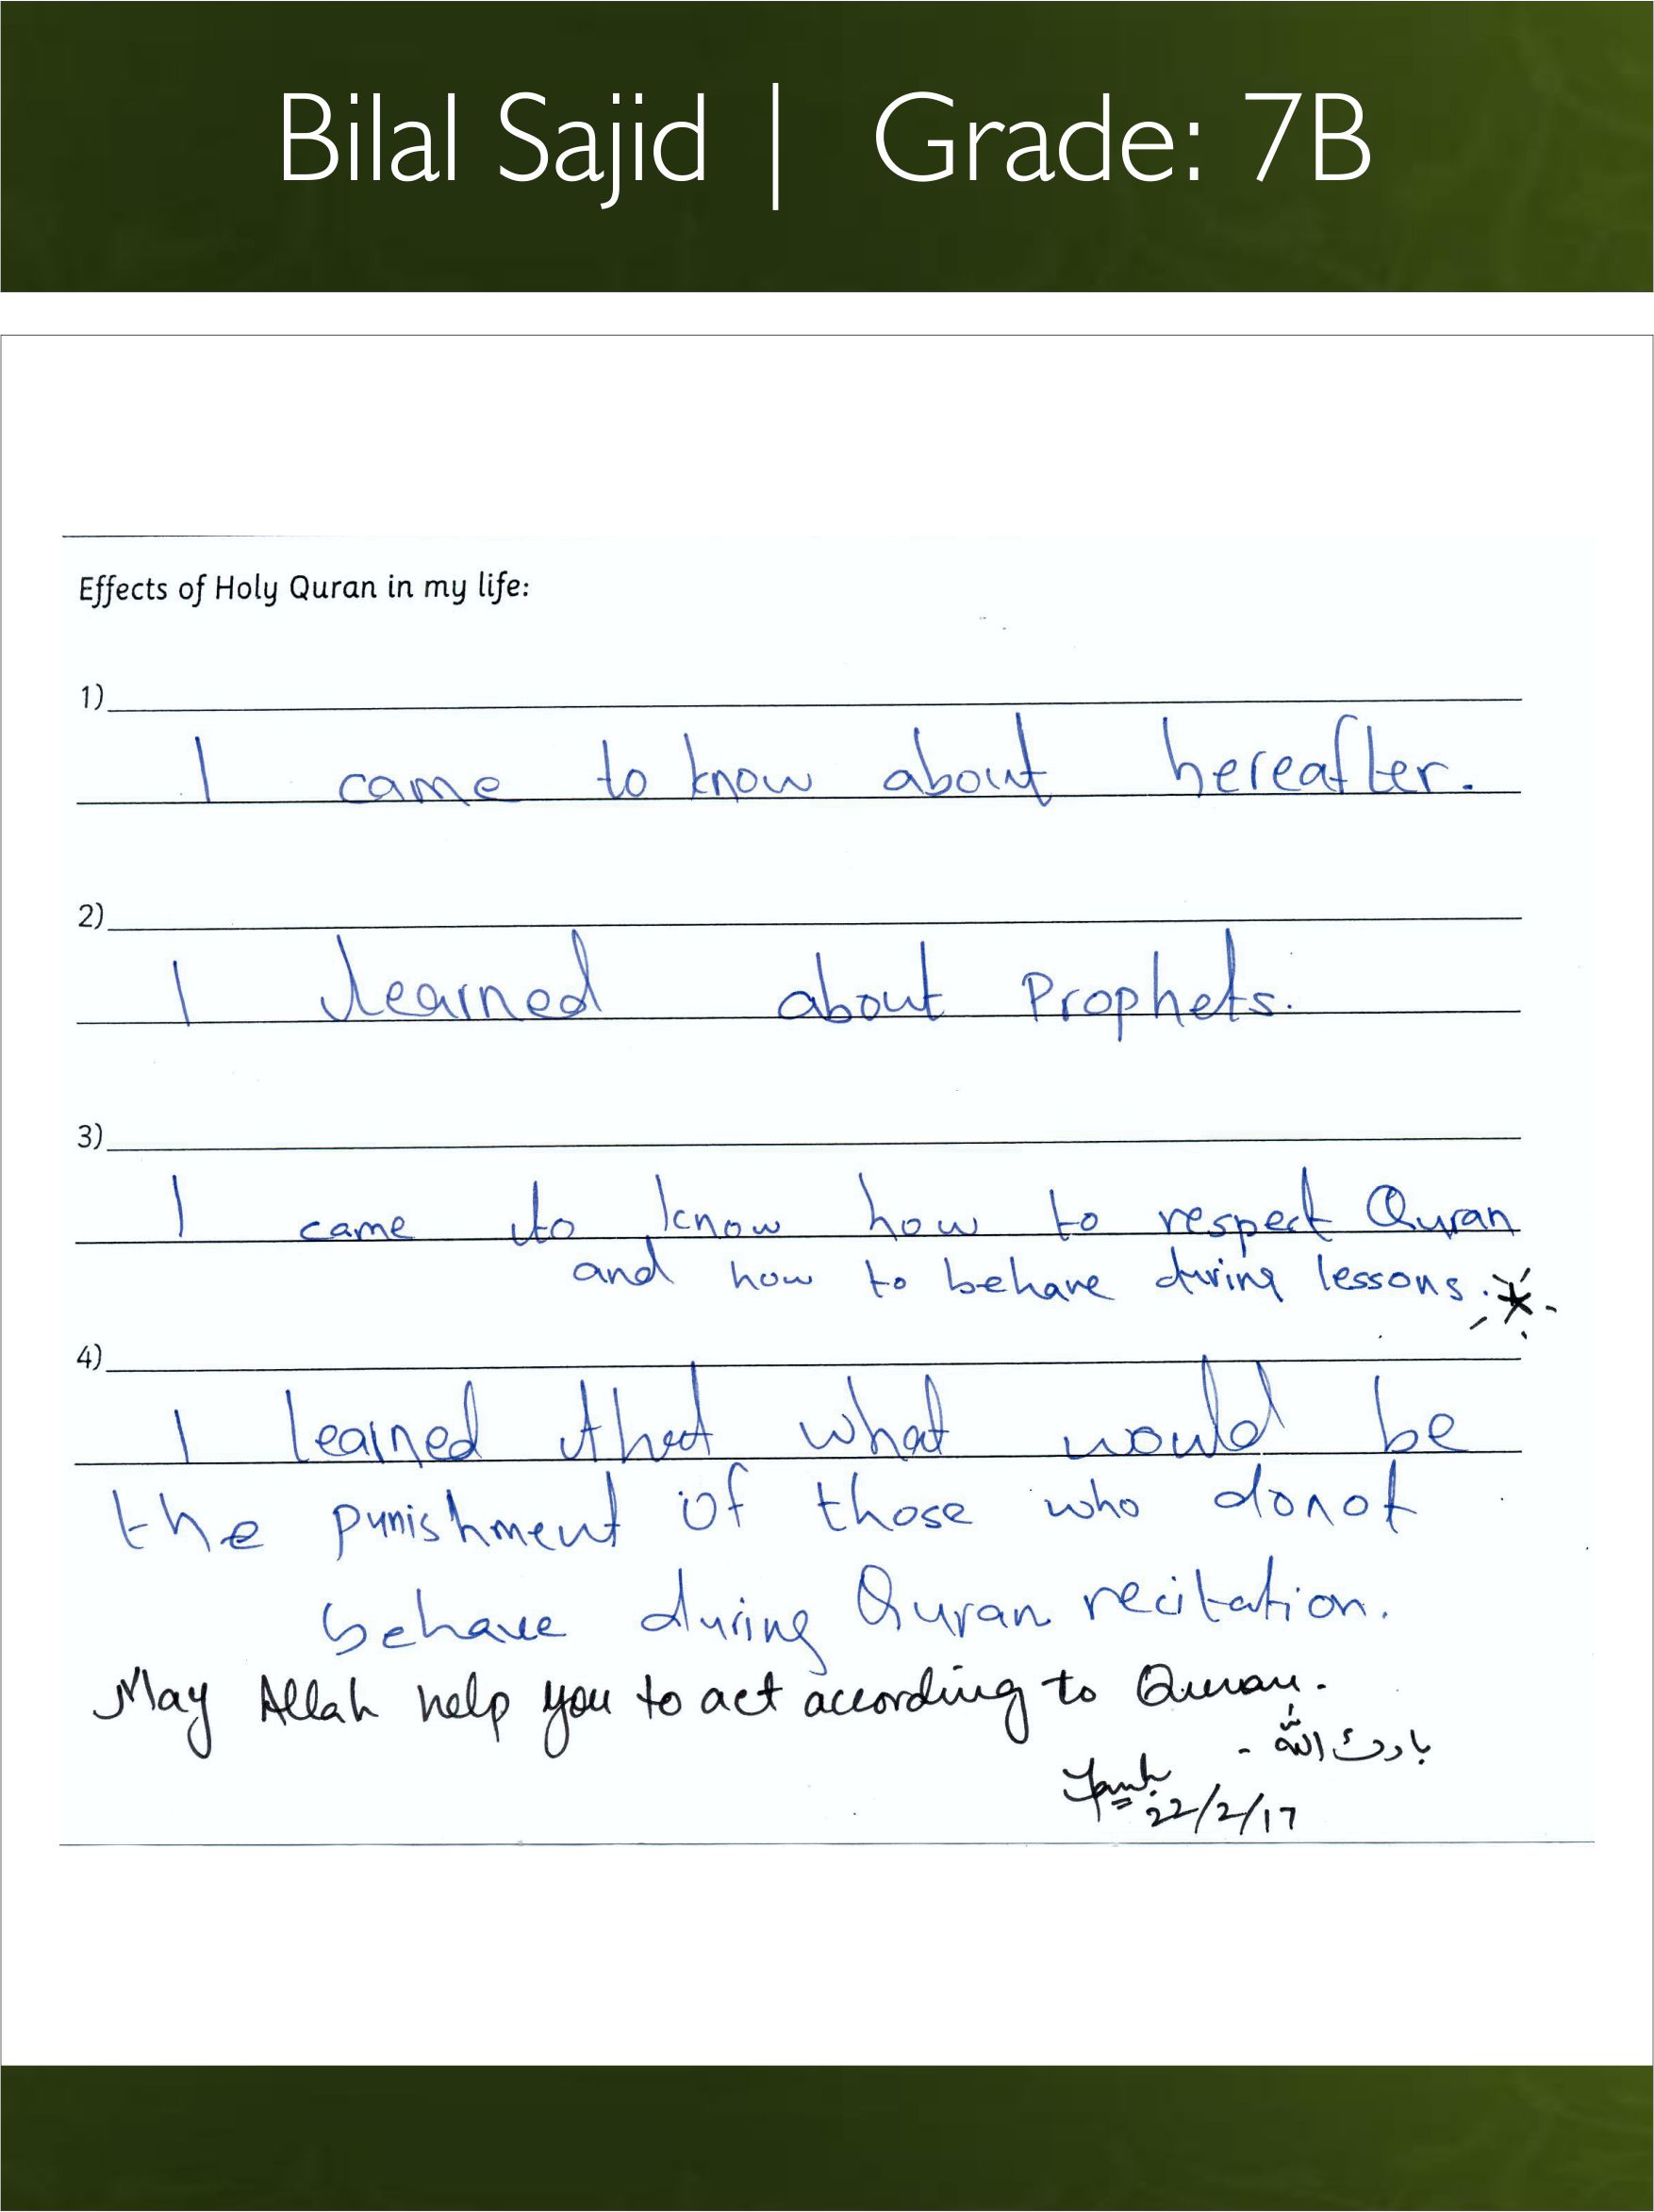 Bilal Sajid | Grade: 7B
Effects of Holy Quran in my life:
1)
I came to know about hereafter.
2)
I learned about Prophets.
3)
I came to know how to respect Quran
and how to behave during lessons.
4)
I learned that what would be
the punishment of those who donot
behave during Quran recitation.
May Allah help you to act according to Quran.
بارك الله -
22/2/17